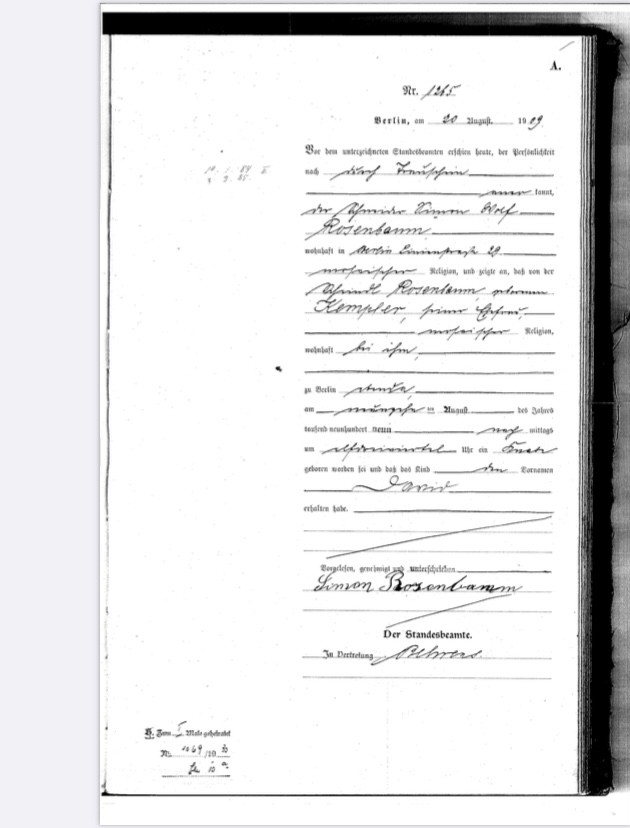 A.
Nr. 1265
Berlin, am 20 August 1909.
Vor dem unterzeichneten Standesbeamten erschien heute, der Persönlichkeit
nach durch Trauschein
aner kannt,
der Schneider Simon Wolf
Rosenbaum
wohnhaft in Berlin Linienstraße 29
mosaischer Religion, und zeigte an, daß von der
Scheindl Rosenbaum geborenen
Kempler, seiner Ehefrau,
mosaischer Religion,
wohnhaft bei ihm,
zu Berlin
am im August des Jahres
tausend neunhundert neun nach mittags
um Uhr ein Knabe
geboren worden sei und daß das Kind den Vornamen
David
erhalten habe.
Vorgelesen, genehmigt und unterschrieben
Simon Rosenbaum
Der Standesbeamte.
In Vertretung Behrens.
Zum I Male geheiratet
Nr.